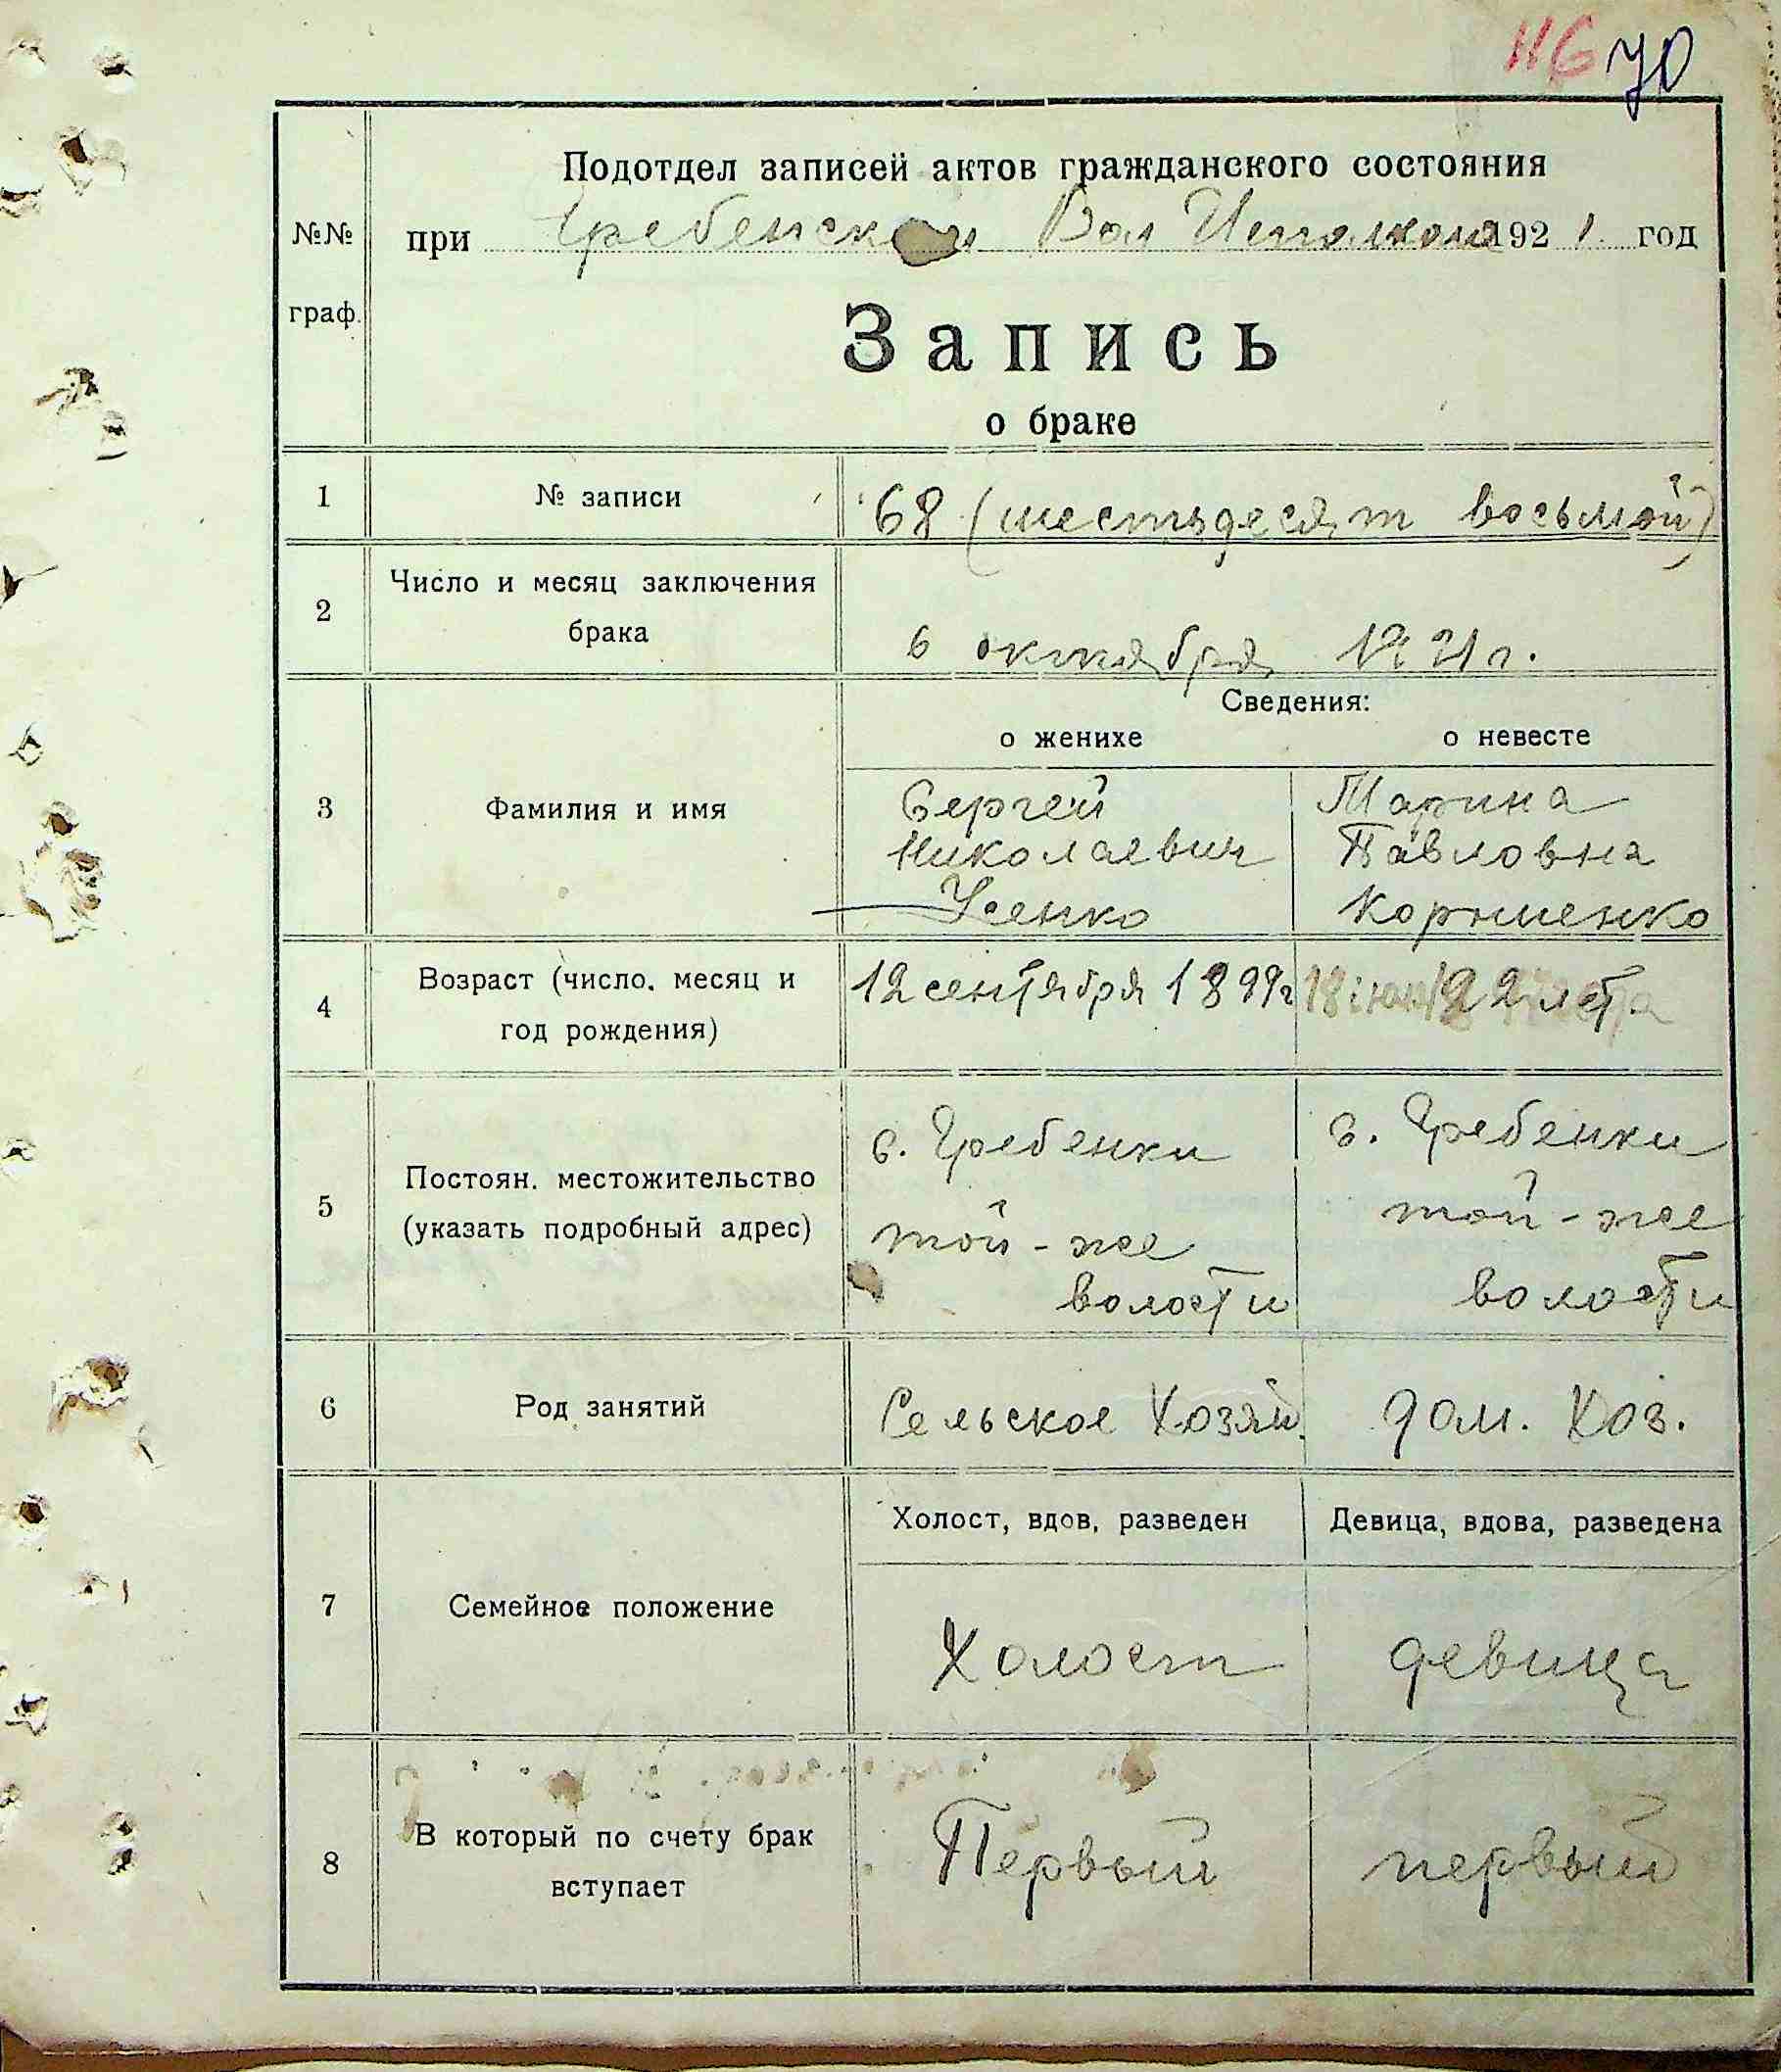 116 70
Подотдел записей актов гражданского состояния
№№ при Гребенской Вол Исполкоме 1921. год
граф.
Запись
о браке
1 № записи 68 (шестьдесят восьмой)
2 Число и месяц заключения
брака 6 октября 1921 г.
Сведения:
о женихе о невесте
3 Фамилия и имя Сергей Марина
Николаевич Павловна
Усенко Корниенко
4 Возраст (число, месяц и 12 сентября 1899 г 22 лет
год рождения)
с. Гребенки с. Гребенки
5 Постоян. местожительство той-же той-же
(указать подробный адрес) волости волости
6 Род занятий Сельское Хозяй. дом. Хоз.
Холост, вдов, разведен Девица, вдова, разведена
7 Семейное положение Холост девица
8 В который по счету брак Первый первый
вступает